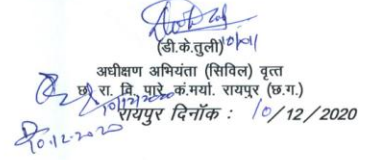 (डी.के.तुली)
अधीक्षण अभियंता (सिविल) वृत्त
छ. रा. वि. पारे. कं.मर्या. रायपुर (छ.ग.)
10/12/2020
रायपुर दिनॉक : 10/12/2020
10.12.2020